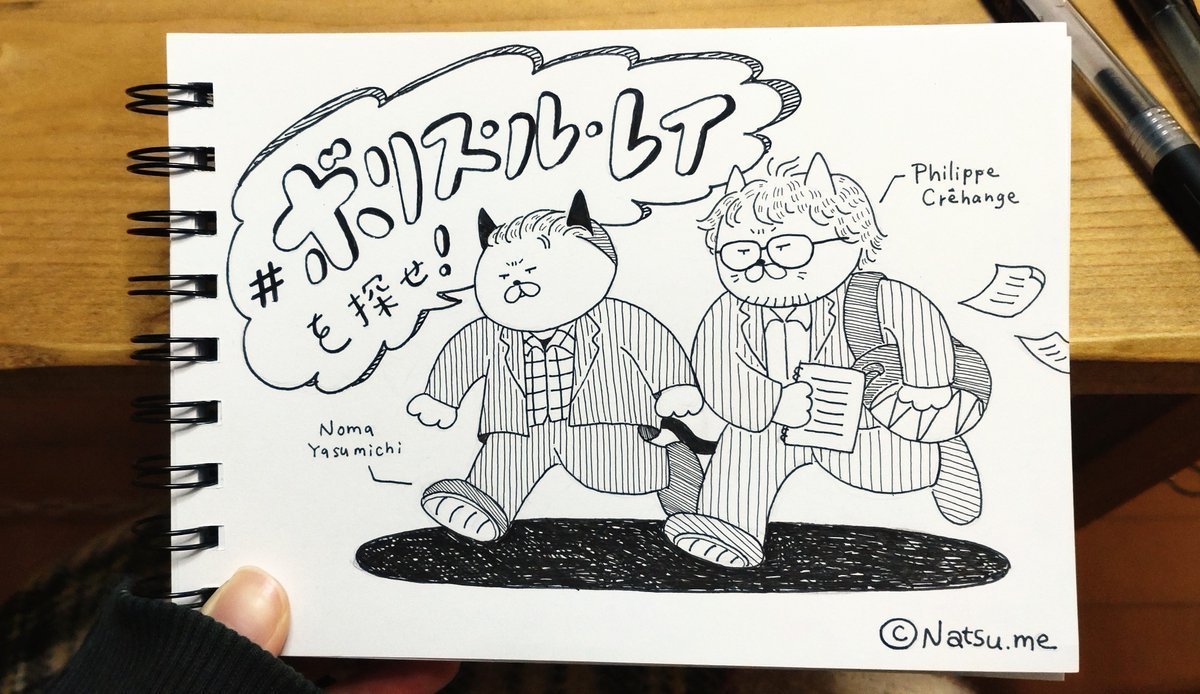 #ボリス・ル・レイ
を探せ!
Philippe
Crêhange
Noma
Yasumichi
©Natsu.me